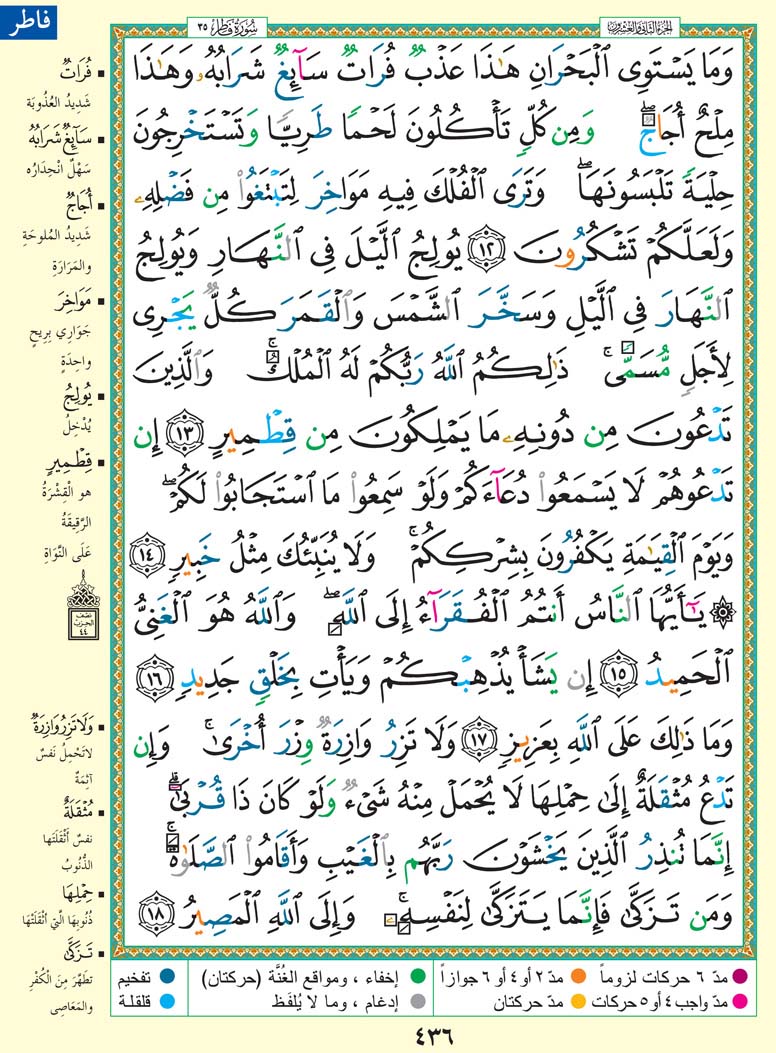 فاطر
الجزء الثاني والعشرون
سُورَةُ فَاطِرٍ ٣٥
وَمَا يَسْتَوِى ٱلْبَحْرَانِ هَـٰذَا عَذْبٌ فُرَاتٌ سَآئِغٌ شَرَابُهُۥ وَهَـٰذَا
مِلْحٌ أُجَاجٌ ۖ وَمِن كُلٍّ تَأْكُلُونَ لَحْمًا طَرِيًّا وَتَسْتَخْرِجُونَ
حِلْيَةً تَلْبَسُونَهَا ۖ وَتَرَى ٱلْفُلْكَ فِيهِ مَوَاخِرَ لِتَبْتَغُوا۟ مِن فَضْلِهِۦ
وَلَعَلَّكُمْ تَشْكُرُونَ ١٢ يُولِجُ ٱلَّيْلَ فِى ٱلنَّهَارِ وَيُولِجُ
ٱلنَّهَارَ فِى ٱلَّيْلِ وَسَخَّرَ ٱلشَّمْسَ وَٱلْقَمَرَ كُلٌّ يَجْرِى
لِأَجَلٍ مُّسَمًّى ۚ ذَٰلِكُمُ ٱللَّهُ رَبُّكُمْ لَهُ ٱلْمُلْكُ ۚ وَٱلَّذِينَ
تَدْعُونَ مِن دُونِهِۦ مَا يَمْلِكُونَ مِن قِطْمِيرٍ ١٣ إِن
تَدْعُوهُمْ لَا يَسْمَعُوا۟ دُعَآءَكُمْ وَلَوْ سَمِعُوا۟ مَا ٱسْتَجَابُوا۟ لَكُمْ ۖ
وَيَوْمَ ٱلْقِيَـٰمَةِ يَكْفُرُونَ بِشِرْكِكُمْ ۚ وَلَا يُنَبِّئُكَ مِثْلُ خَبِيرٍ ١٤
۞ يَـٰٓأَيُّهَا ٱلنَّاسُ أَنتُمُ ٱلْفُقَرَآءُ إِلَى ٱللَّهِ ۖ وَٱللَّهُ هُوَ ٱلْغَنِىُّ
ٱلْحَمِيدُ ١٥ إِن يَشَأْ يُذْهِبْكُمْ وَيَأْتِ بِخَلْقٍ جَدِيدٍ ١٦
وَمَا ذَٰلِكَ عَلَى ٱللَّهِ بِعَزِيزٍ ١٧ وَلَا تَزِرُ وَازِرَةٌ وِزْرَ أُخْرَىٰ ۚ وَإِن
تَدْعُ مُثْقَلَةٌ إِلَىٰ حِمْلِهَا لَا يُحْمَلْ مِنْهُ شَىْءٌ وَلَوْ كَانَ ذَا قُرْبَىٰٓ ۗ
إِنَّمَا تُنذِرُ ٱلَّذِينَ يَخْشَوْنَ رَبَّهُم بِٱلْغَيْبِ وَأَقَامُوا۟ ٱلصَّلَوٰةَ ۚ
وَمَن تَزَكَّىٰ فَإِنَّمَا يَتَزَكَّىٰ لِنَفْسِهِۦ ۚ وَإِلَى ٱللَّهِ ٱلْمَصِيرُ ١٨
▪ فُرَاتٌ
شَدِيدُ العُذُوبَة
▪ سَآئِغٌ شَرَابُهُ
سَهْلٌ انْحِدَارُه
▪ أُجَاجٌ
شَدِيدُ المُلوحَةِ
والمَرَارَةِ
▪ مَوَاخِرَ
جَوَارِي بِرِيحٍ
واحِدَةٍ
▪ يُولِجُ
يُدْخِلُ
▪ قِطْمِيرٍ
هو الْقِشْرَةُ
الرَّقِيقَةُ
عَلَى النَّوَاةِ
نصف
الحزب
٤٤
▪ وَلَا تَزِرُ وَازِرَةٌ
لاتَحْمِلُ نَفسٌ
آثِمَةٌ
▪ مُثْقَلَةٌ
نفسٌ أَثْقَلَتْها
الذُّنُوبُ
▪ حِمْلِهَا
ذُنُوبِهَا الَّتِي أثْقَلَتْهَا
▪ تَزَكَّىٰ
تطَهَّرَ مِنَ الْكُفْرِ
والمَعَاصِي
مدّ ٦ حركات لزوماً
مدّ ٢ أو ٤ أو ٦ جوازاً
إخفاء ، ومواقع الغُنَّة (حركتان)
تفخيم
مدّ واجب ٤ أو ٥ حركات
مدّ حركتان
إدغام ، وما لا يُلفَظ
قلقلة
٤٣٦